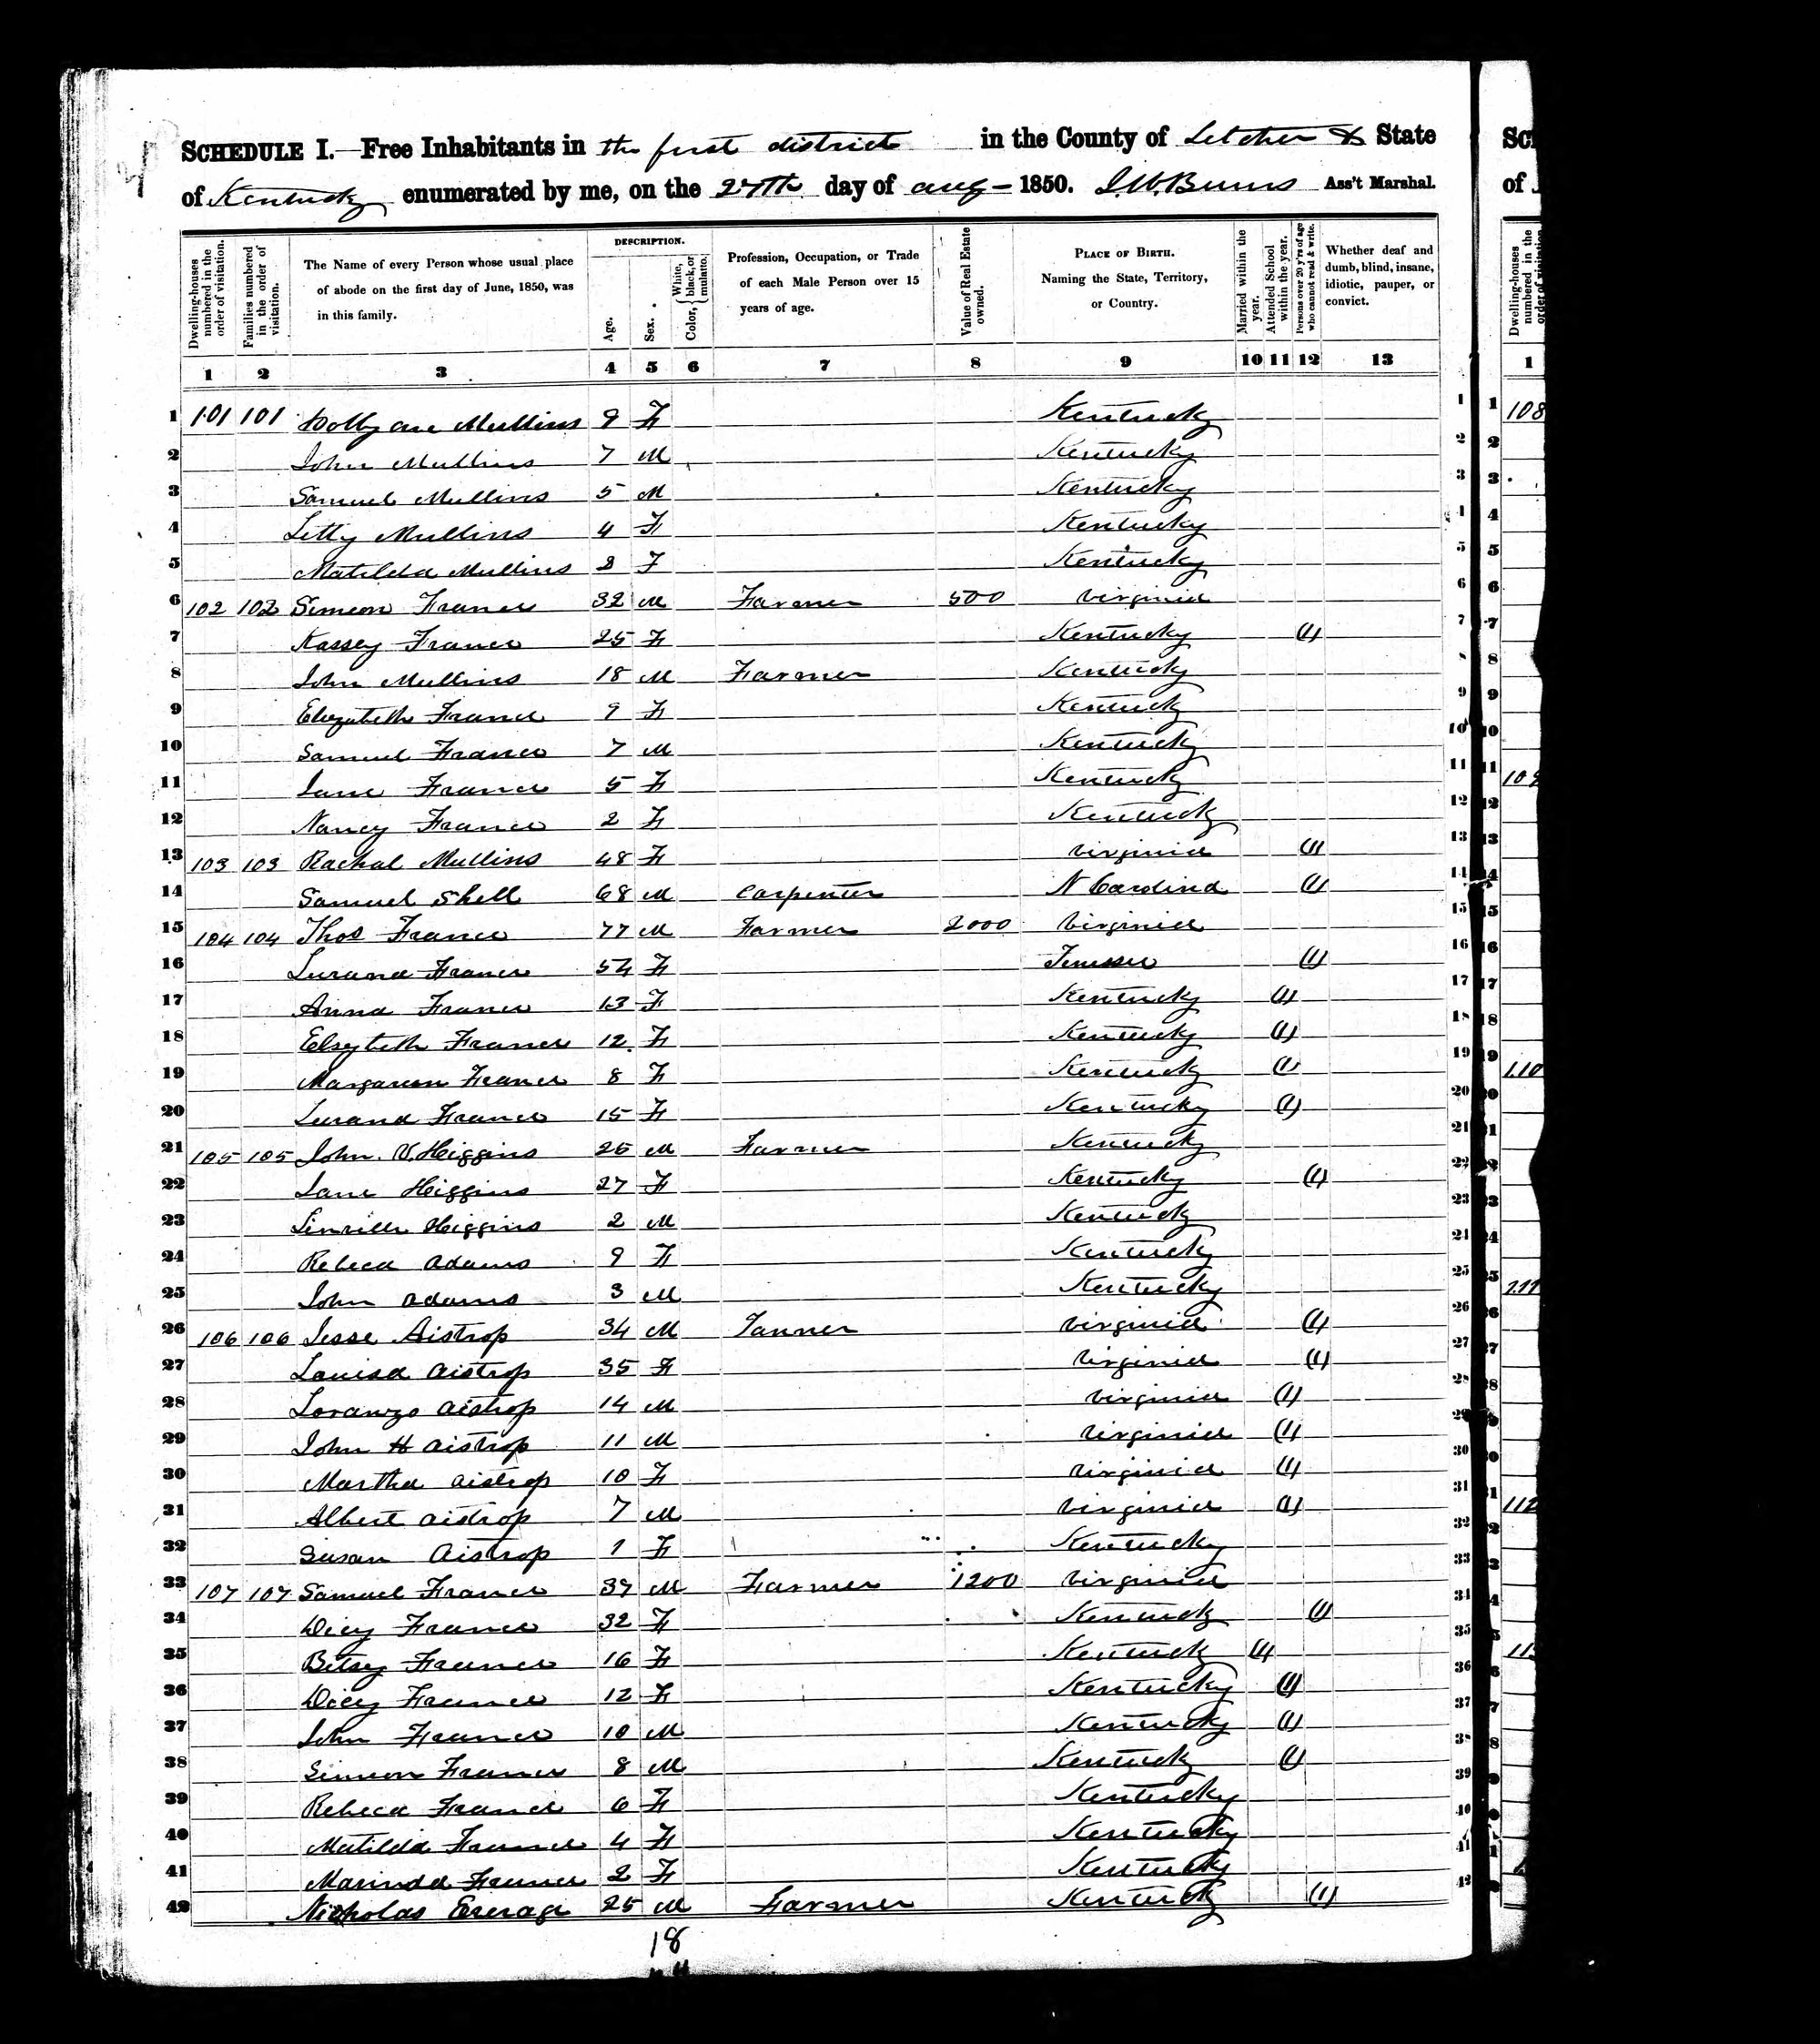 SCHEDULE I.—Free Inhabitants in the first district in the County of Letcher & State
of Kentucky enumerated by me, on the 27th day of aug - 1850. Ass't Marshal.
Dwelling-houses numbered in the order of visitation.
Families numbered in the order of visitation.
The Name of every Person whose usual place of abode on the first day of June, 1850, was in this family.
DESCRIPTION.
Age.
Sex.
Color, { White, black, or mulatto.
Profession, Occupation, or Trade of each Male Person over 15 years of age.
Value of Real Estate owned.
PLACE OF BIRTH. Naming the State, Territory, or Country.
Married within the year.
Attended School within the year.
Persons over 20 y'rs of age who cannot read & write.
Whether deaf and dumb, blind, insane, idiotic, pauper, or convict.
1 2 3 4 5 6 7 8 9 10 11 12 13
1 101 101 Mullins 9 F Kentucky 1
2 John Mullins 7 M Kentucky 2
3 Samuel Mullins 5 M Kentucky 3
4 Letty Mullins 4 F Kentucky 4
5 Matilda Mullins F Kentucky 5
6 102 102 Simeon France 32 M Farmer 500 Virginia 6
7 Kassey France 25 F Kentucky (1) 7
8 John Mullins 18 M Farmer Kentucky 8
9 Elizabeth France 9 F Kentucky 9
10 Samuel France 7 M Kentucky 10
11 Jane France 5 F Kentucky 11
12 Nancy France 2 F Kentucky 12
13 103 103 Rachal Mullins 48 F Virginia (1) 13
14 Samuel Shell 68 M Carpenter N Carolina (1) 14
15 104 104 Thos France 77 M Farmer 2000 Virginia 15
16 Lurana France 54 F Tenessee (1) 16
17 Anna France 13 F Kentucky (1) 17
18 Elsybeth France 12 F Kentucky (1) 18
19 France 8 F Kentucky (1) 19
20 Lurana France 15 F Kentucky (1) 20
21 105 105 John Higgins M Farmer Kentucky 21
22 Jane Higgins 27 F Kentucky (1) 22
23 Linville Higgins 2 M Kentucky 23
24 Rebeca Adams 9 F Kentucky 24
25 John Adams 3 M Kentucky 25
26 106 106 Jesse Aistrop 34 M Tanner Virginia (1) 26
27 Louisa Aistrop 35 F Virginia (1) 27
28 Loranzo Aistrop 14 M Virginia (1) 28
29 John H Aistrop 11 M Virginia (1) 29
30 Martha Aistrop 10 F Virginia (1) 30
31 Albert Aistrop 7 M Virginia (1) 31
32 Susan Aistrop 1 F Kentucky 32
33 107 107 Samuel France M Farmer 1200 Virginia 33
34 Dicy France 32 F Kentucky (1) 34
35 Betsy France 16 F Kentucky (1) 35
36 Dicy France 12 F Kentucky (1) 36
37 John France 10 M Kentucky (1) 37
38 Simeon France 8 M Kentucky (1) 38
39 Rebeca France 6 F Kentucky 39
40 Matilda France 4 F Kentucky 40
41 Marinda France 2 F Kentucky 41
42 Nicholas 25 M Farmer Kentucky (1) 42
18